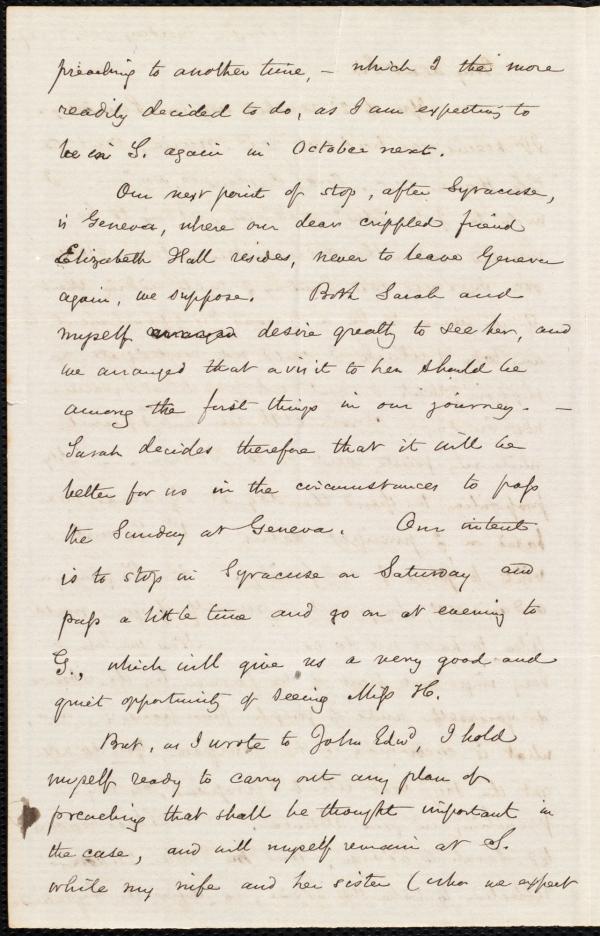 preaching to another time, – which I the more
readily decided to do, as I am expecting to
be in S. again in October next.
Our next point of stop, after Syracuse,
is Geneva, where our dear crippled friend
Elizabeth Hall resides, never to leave Geneva
again, we suppose. Both Sarah and
myself desire greatly to see her, and
we arranged that a visit to her should be
among the first things in our journey. –
Sarah decides therefore that it will be
better for us in the circumstances to pass
the Sunday at Geneva. Our intent
is to stop in Syracuse on Saturday and
pass a little time and go on at evening to
G., which will give us a very good and
quiet opportunity of seeing Miss H.
But, as I wrote to John Edwd, I hold
myself ready to carry out any plan of
preaching that shall be thought important in
the case, and will myself remain at S.
while my wife and her sister (who we expect